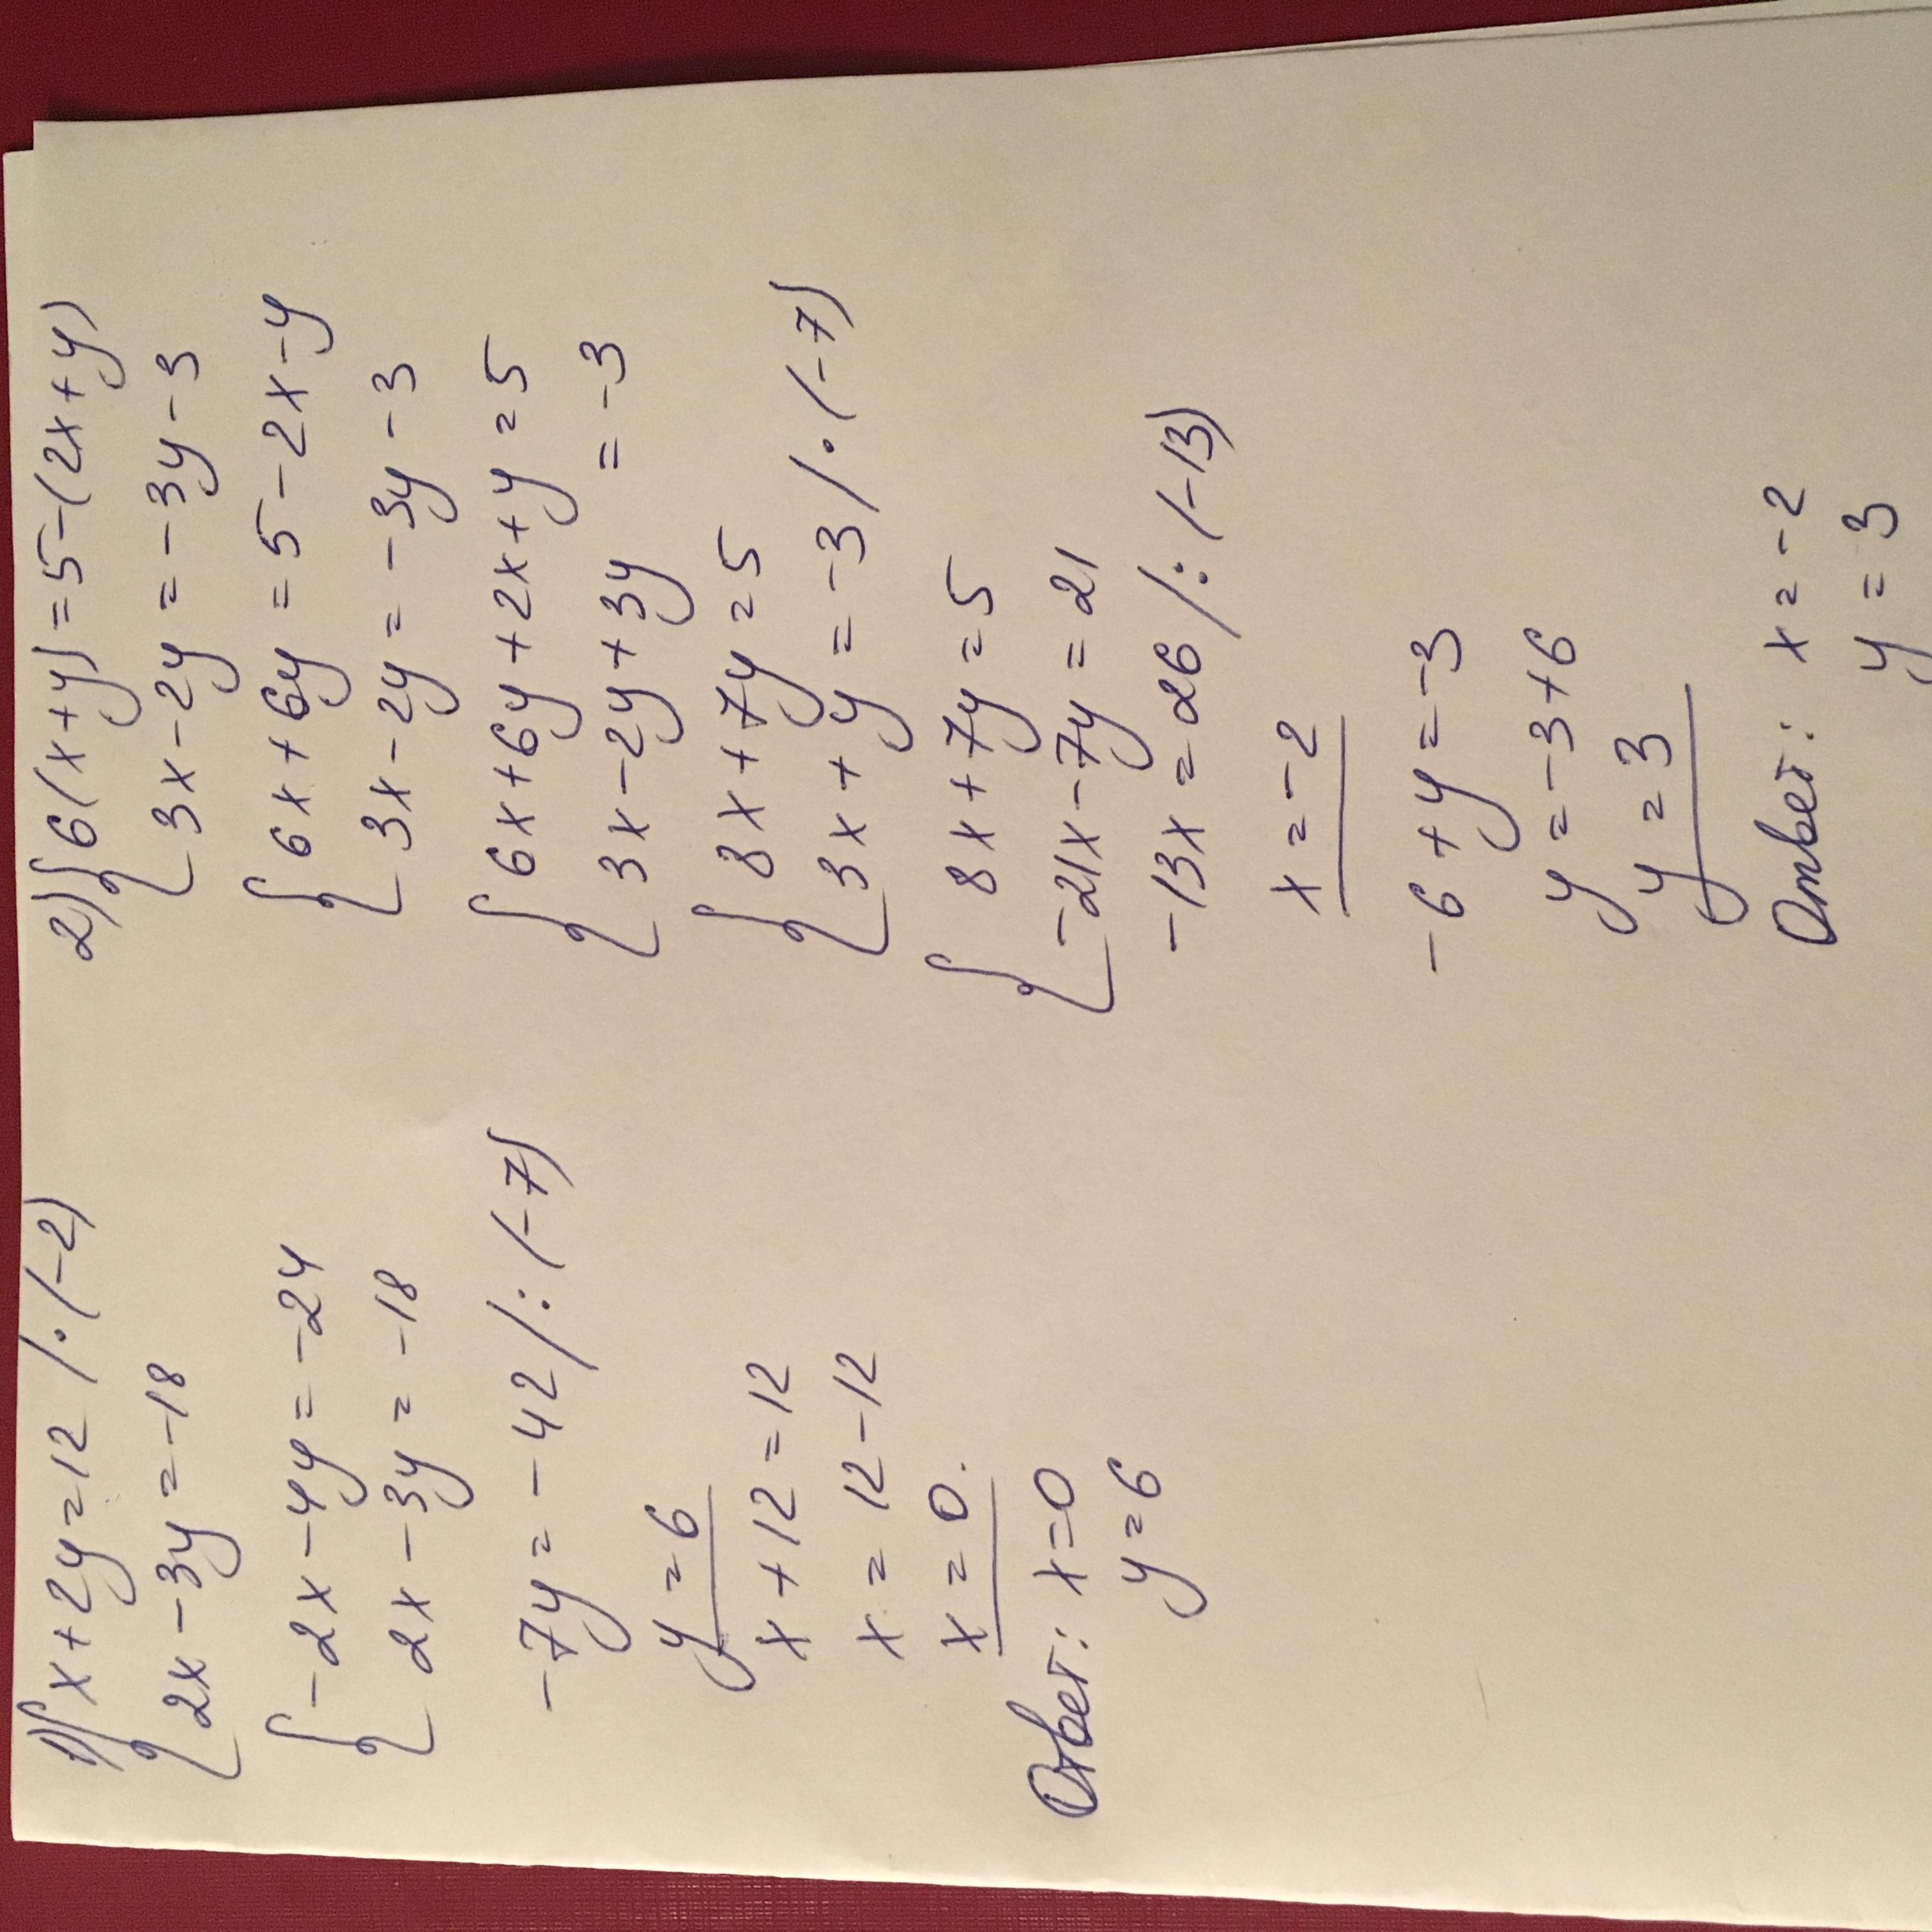 1) { x + 2y = 12 / · (-2)
2x - 3y = -18
{ -2x - 4y = -24
2x - 3y = -18
-7y = -42 / : (-7)
y = 6
x + 12 = 12
x = 12 - 12
x = 0.
Ответ: x = 0
y = 6
2) { 6(x+y) = 5 - (2x+y)
3x - 2y = -3y - 3
{ 6x + 6y = 5 - 2x - y
3x - 2y = -3y - 3
{ 6x + 6y + 2x + y = 5
3x - 2y + 3y = -3
{ 8x + 7y = 5
3x + y = -3 / · (-7)
{ 8x + 7y = 5
-21x - 7y = 21
-13x = 26 / : (-13)
x = -2
-6 + y = -3
y = -3 + 6
y = 3
Ответ: x = -2
y = 3